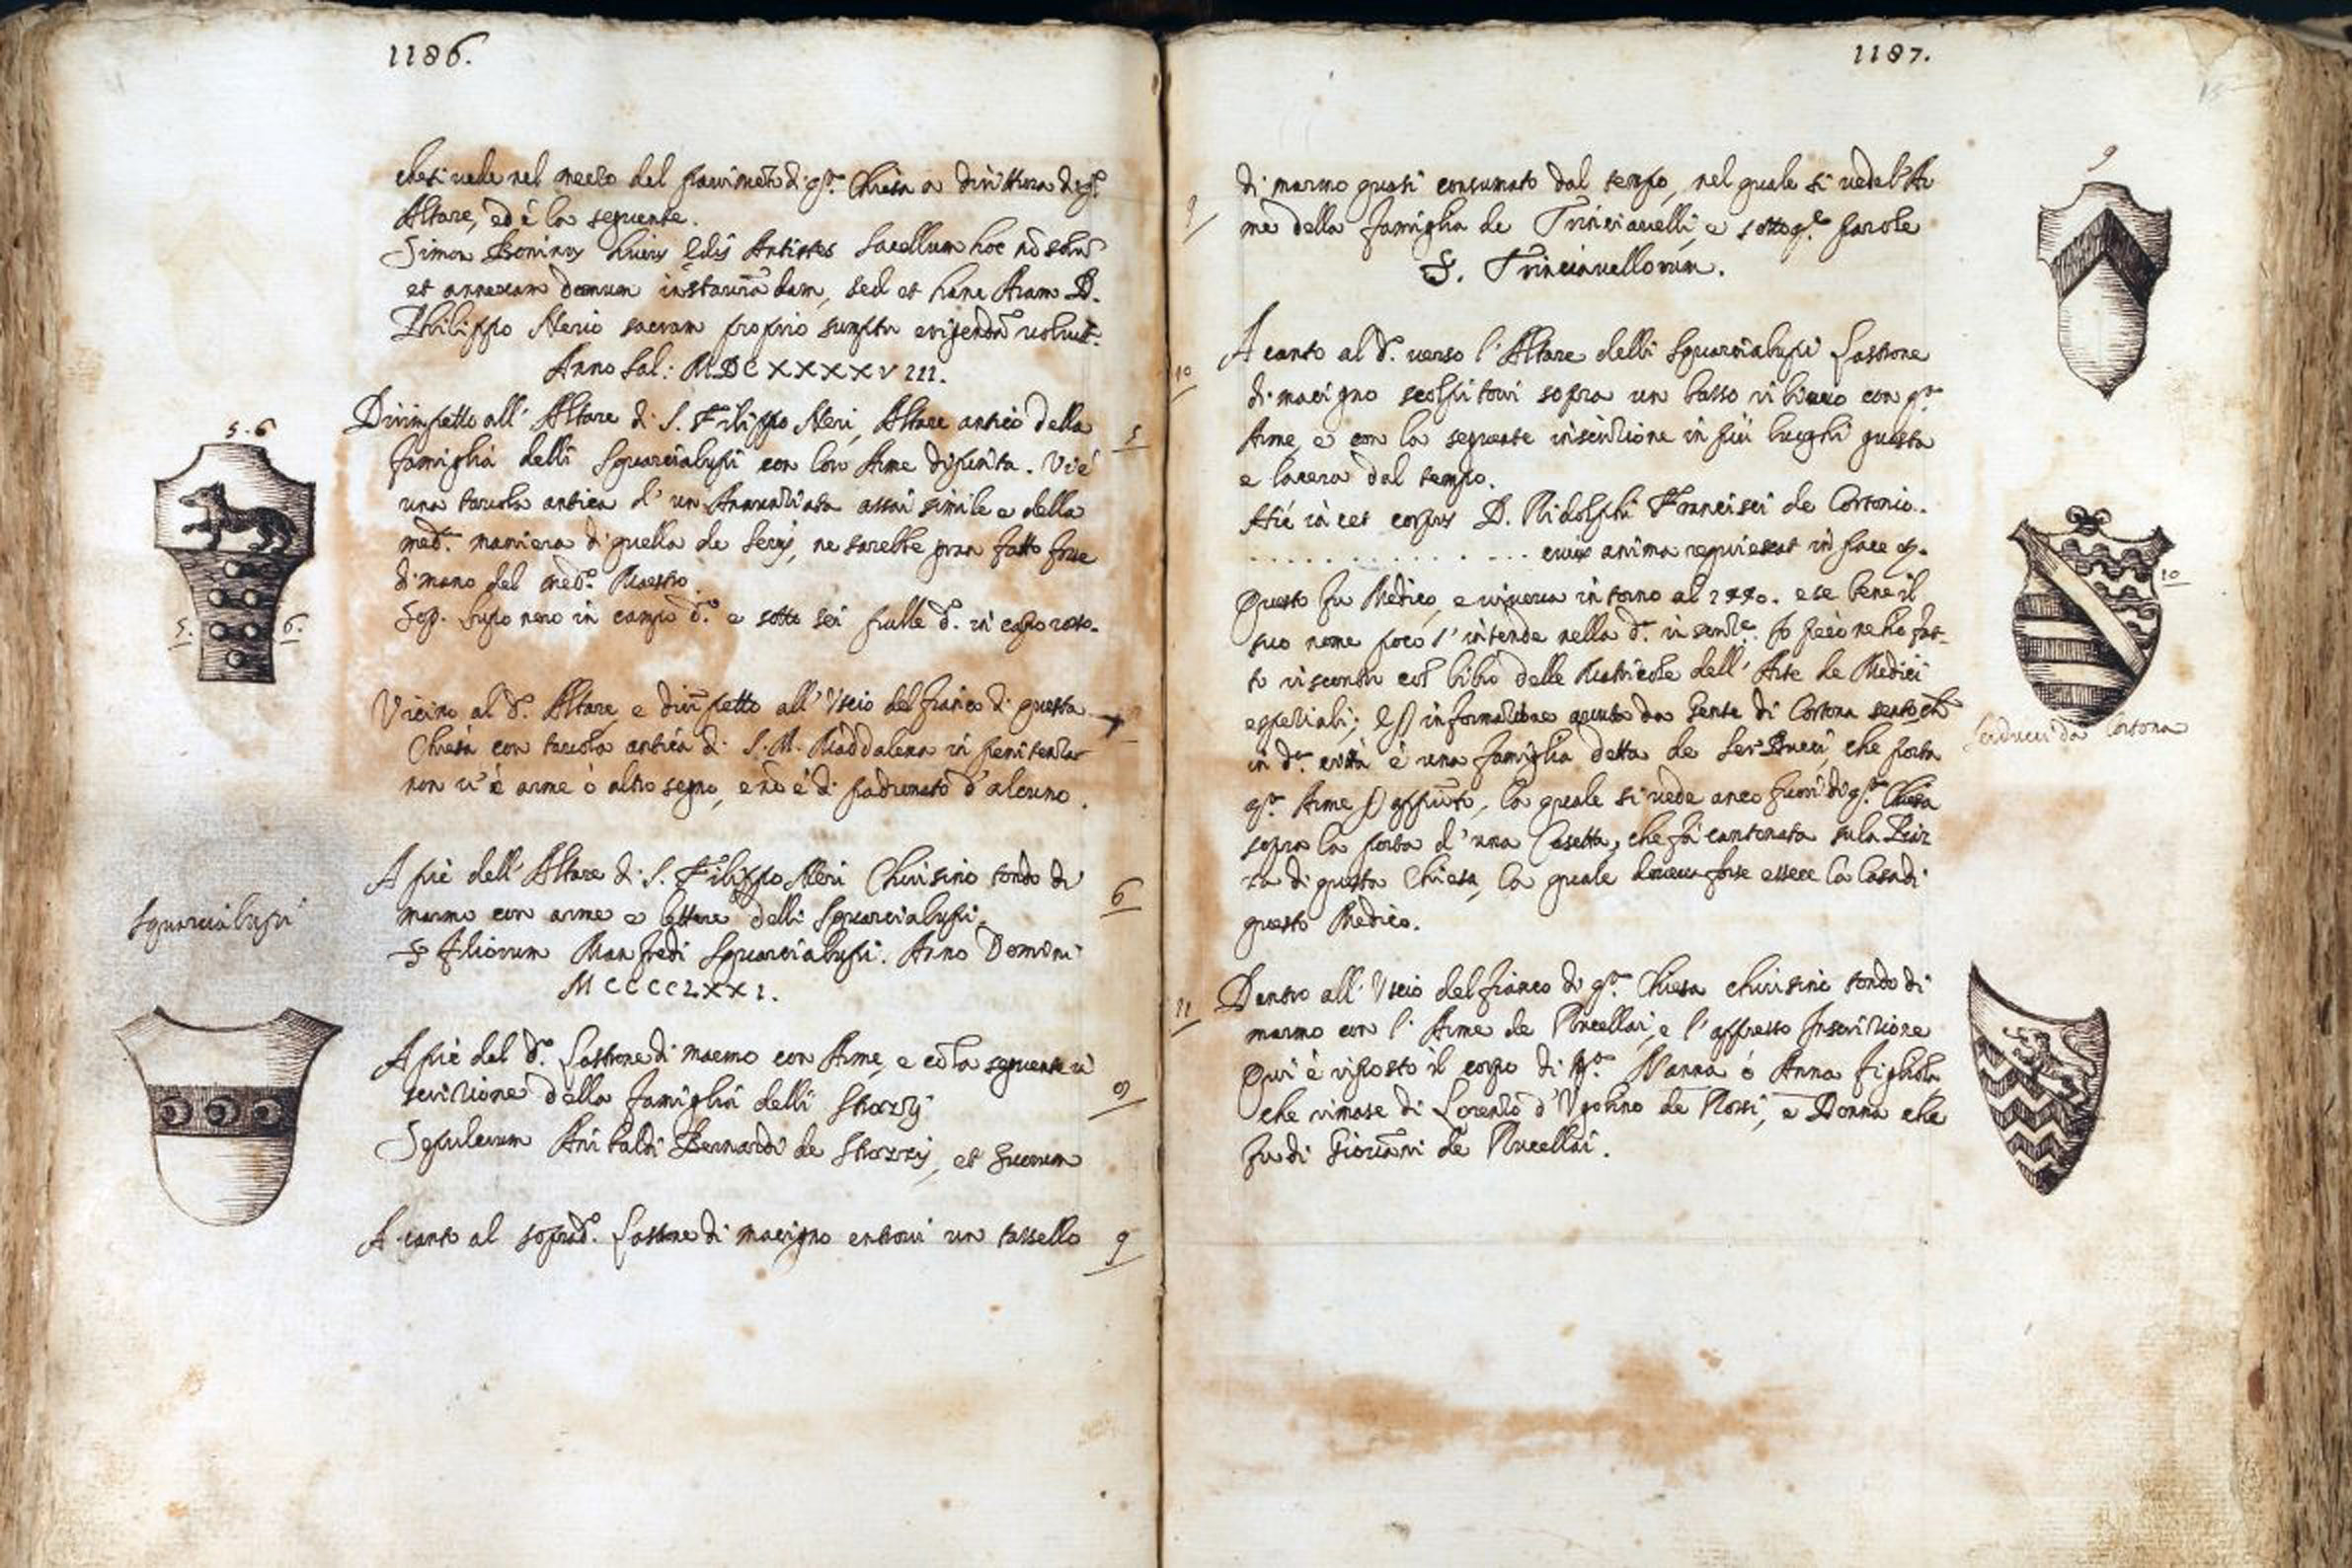 1186.
che si vede nel mezzo del pavimẽto di qṫa Chiesa a dirittura di qṫo
Altare, ed è la seguente.
Simon Boninus huius Ędis Antistes Sacellum hoc nõ solũ
et annexam domum instaurãdam, sed et hanc Aram D.
Philippo Nerio sacram proprio sumptu erigendã voluit.
Anno Sal: MDCXXXXVIII.
Dirimpetto all' Altare di S. Filippo Neri, Altare antico della 5
famiglia delli Squarcialupi con loro Arme dipinta. Vi è
una tavola antica d' un Annunziata assai simile e della
med.ª maniera di quella de Servi, ne sarebbe gran fatto fosse
di mano del med.º Maestro.
5. 6
Lupo nero in campo d.º e sotto sei palle d.º in capo rosso.
5. 6.
Vicino al d.º Altare, e dirĩpetto all' Uscio del fianco di questa
Chiesa con tavola antica di S. M. Maddalena in penitenza
non v' è arme ò altro segno, e nõ è di padronato d' alcuno.
A piè dell' Altare di S. Filippo Neri Chiusino tondo di 6
marmo con arme e lettere delli Squarcialupi.
S Filiorum Manfredi Squarcialupi. Anno Domini
MCCCCLXXI.
Squarcialupi
A piè del d.º Lastrone di marmo con Arme, e cõ la seguente in
scrizione della famiglia delli Strozzi 8
Sepulcrum Bernardi de Strozzis, et suorum
A canto al soprad.º Lastrone di macigno entrovi un tassello 9
1187.
di marmo quasi consumato dal tempo, nel quale si vede l' Ar
9 me della famiglia de Trinciavelli, e sotto q.e parole
S. Trinciavellorum.
9
10 A canto al d.º verso l' Altare delli Squarcialupi Lastrone
di macigno scolpitovi sopra un basso rilievo con qṫa
Arme, e con la seguente inscrizione in più luoghi guasta
e lacera dal tempo.
Hic iacet corpus D. Ridolphi Francisci de Cortonio..
. . . . . . . . . . . . . . cuius anima requiescat in pace
Questo fu Medico, e viveva intorno al 1440. e se bene il
suo nome poco s' intende nella d.ª inscriz.e Io però ne ho fat-
to riscontro col libro delle Matricole dell' Arte de Medici
e speziali; informazione avuta da gente di Cortona
in d.ª città è una famiglia detta de Ser Ducci, che porta
qṫa Arme la quale si vede anco fuori di qṫa Chiesa
sopra la porta d' una Casetta, che fà cantonata sula Piaz
za di questa Chiesa, la quale doveva forse essere la Casa di
questo Medico.
10
Serducci da Cortona
11 Dentro all' Uscio del fianco di qṫa Chiesa chiusino tondo di
marmo con l' Arme de Rucellai, e l' appresso Inscrizione
Qui è riposto il corpo di M.ª Nanna ò Anna figliola
che rimase di Lorenzo d' Ugolino de Rossi, e Donna che
fu di Giovãni de Rucellai.